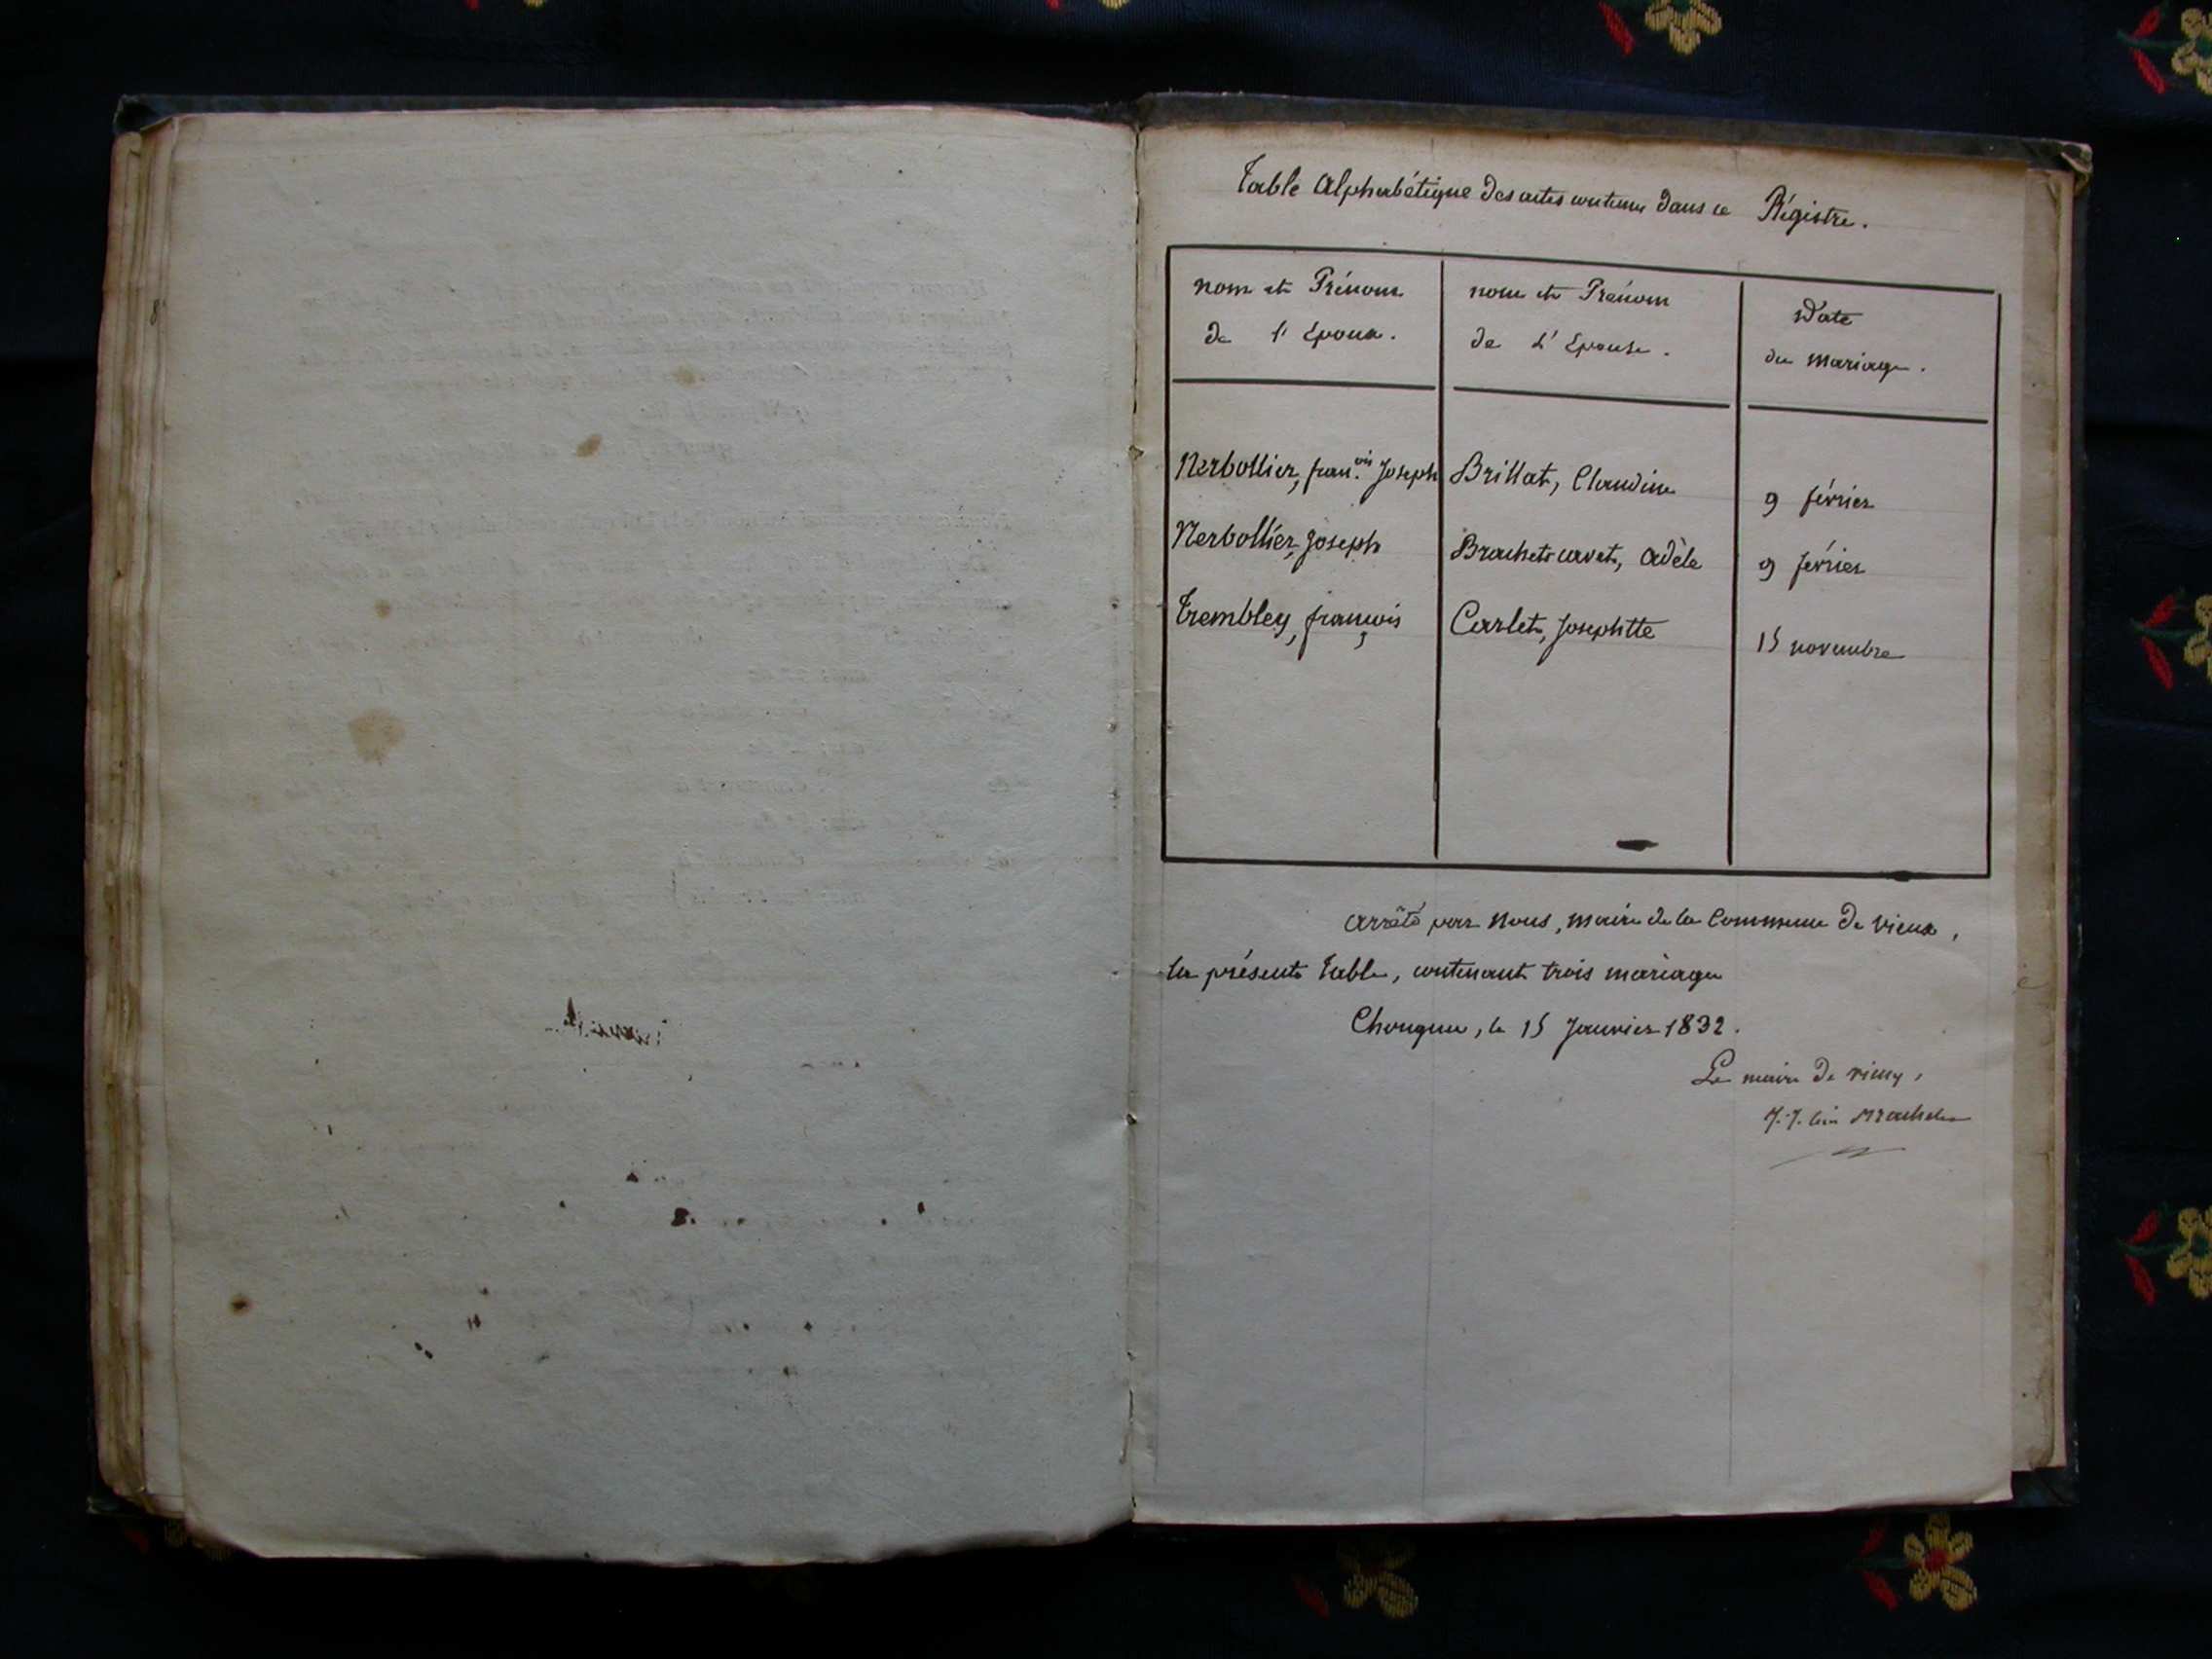 Table Alphabétique des actes contenus dans ce Régistre.
nom et Prénoms
de l'Epoux.
nom et Prénom
de L'Epouse.
Date
du mariage.
Nerbollier, fran.ois Joseph
Brillat, Claudine
9 février
Nerbollier, Joseph
Brachet cavet, Adèle
9 février
Trembley, françois
Carlet, Josephtte
15 novembre
arrêté par Nous, maire de la Commune de vieux,
la présente Table, contenant trois mariages
Chongnes, le 15 Janvier 1832.
Le maire de vieux,
J. J.